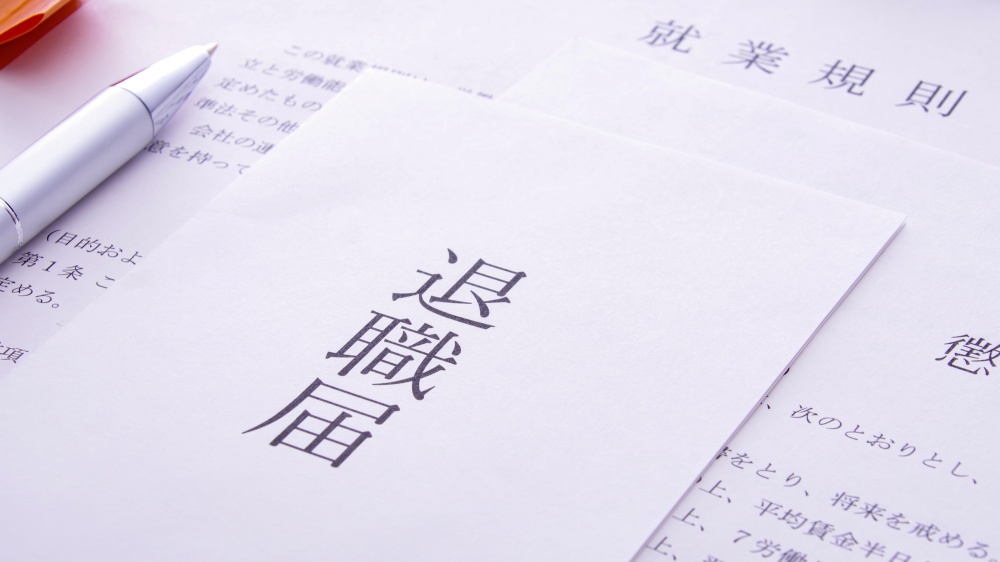 就業規則
この就業
立と労働能
定めたもの
準法その他
会社の運
意を持って
(目的およ
第1条 こ
定める。
項
退職届
懲
、次のとおりとし、
をとり、将来を戒める。
上、平均賃金半日
上、7労働
上、